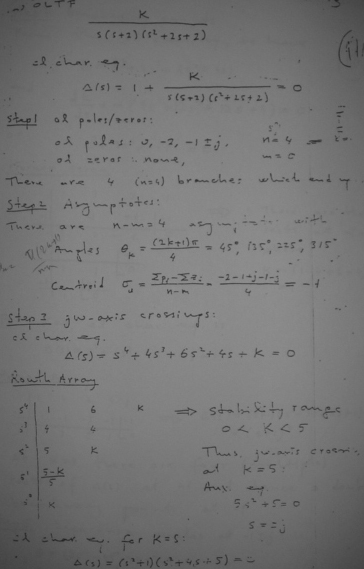 OLTF
K
s(s+2)(s²+2s+2)
cl char. eq.
Δ(s) = 1 + K / s(s+2)(s²+2s+2) = 0
Step 1 ol poles/zeros:
ol poles: 0, -2, -1 ± j, n=4
ol zeros: none, m=0
There are 4 (n=4) branches which end up
Step 2 Asymptotes:
There are n-m=4 with
Angles θk = (2k+1)π / 4 = 45°, 135°, 225°, 315°
Centroid = (Σpi - Σzi) / (n-m) = (-2-1+j-1-j) / 4 = -1
Step 3 jw-axis crossings:
cl char. eq.
Δ(s) = s⁴ + 4s³ + 6s² + 4s + K = 0
Routh Array
s⁴ | 1 6 K ⇒ stability range
s³ | 4 4 0 < K < 5
s² | 5 K Thus, jw-axis
s¹ | (5-K)/5 at K=5:
K Aux. eq.
5s² + 5 = 0
s = ±j
cl char. eq. for K=5:
Δ(s) = (s²+1)(s²+4s+5) =